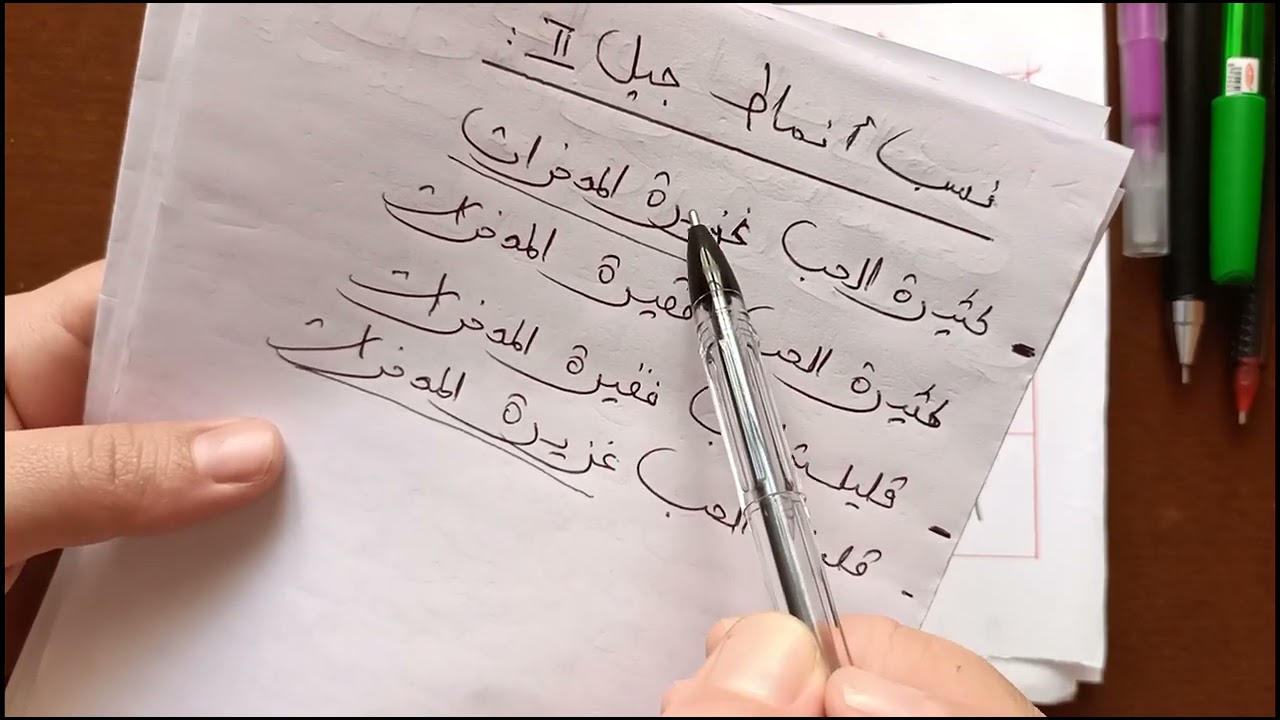 نسب أنماط جيل II :
- كثيرة الحب غزيرة المدخرات
كثيرة الحب فقيرة المدخرات
- قليلة فقيرة المدخرات
- الحب غزيرة المدخرات